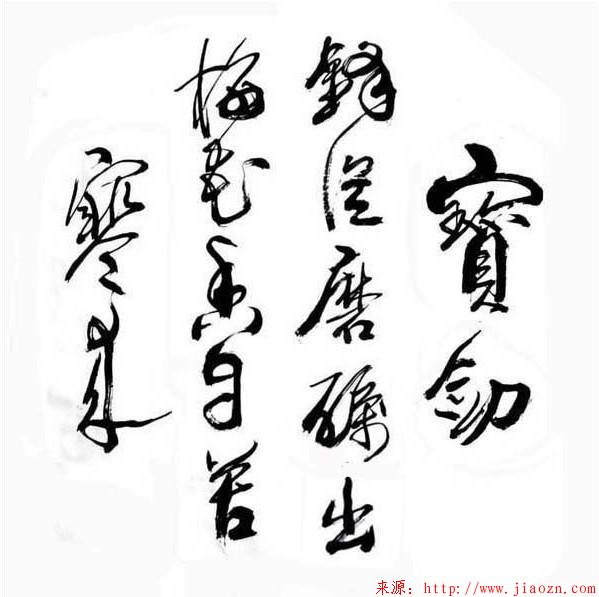 寶劍
鋒從磨礪出
梅花香自苦
寒來
来源：http://www.jiaozn.com